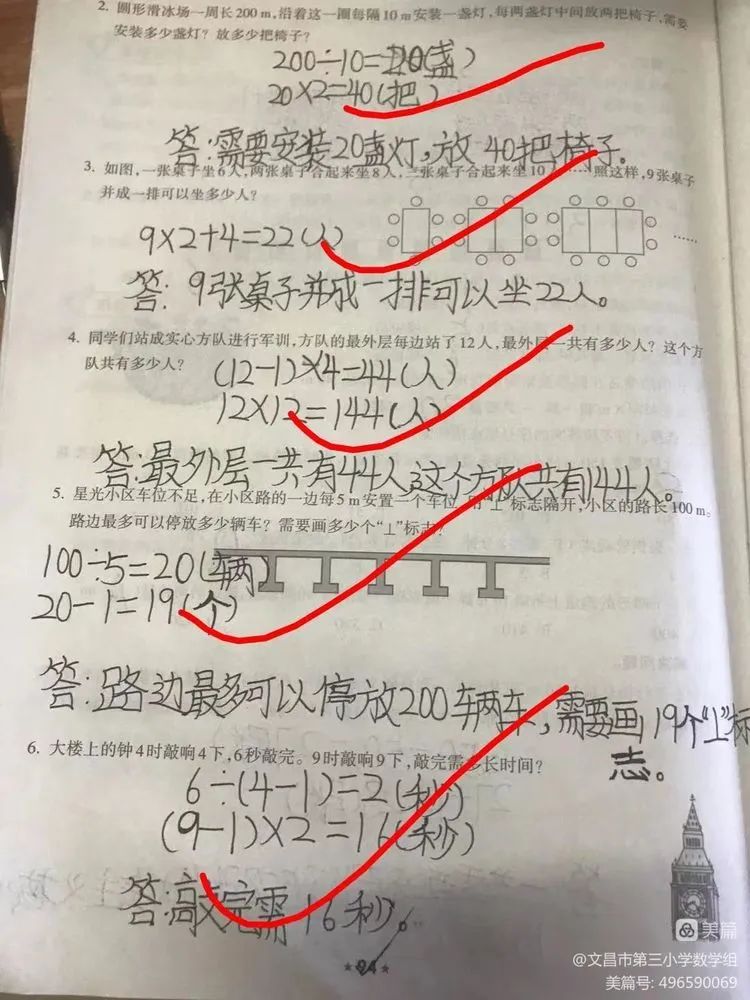 2. 圆形滑冰场一周长200 m,沿着这一圈每隔10 m安装一盏灯,每两盏灯中间放两把椅子,需要
安装多少盏灯?放多少把椅子?
200÷10=20(盏)
20×2=40(把)
答:需要安装20盏灯,放40把椅子。
3. 如图,一张桌子坐6人,两张桌子合起来坐8人,三张桌子合起来坐10人……照这样,9张桌子
并成一排可以坐多少人?
9×2+4=22(人)
……
答:9张桌子并成一排可以坐22人。
4. 同学们站成实心方队进行军训,方队的最外层每边站了12人,最外层一共有多少人?这个方
队共有多少人?
(12-1)×4=44(人)
12×12=144(人)
答:最外层一共有44人,这个方队共有144人。
5. 星光小区车位不足,在小区路的一边每5 m安置一个车位,用“⊥”标志隔开,小区的路长100 m。
路边最多可以停放多少辆车?需要画多少个“⊥”标志?
100÷5=20(辆)
20-1=19(个)
答:路边最多可以停放200车两车,需要画19个“⊥”标
志。
6. 大楼上的钟4时敲响4下,6秒敲完。9时敲响9下,敲完需多长时间?
6÷(4-1)=2(秒)
(9-1)×2=16(秒)
答:敲完需16秒。
★94★
美篇
@文昌市第三小学数学组
美篇号: 496590069